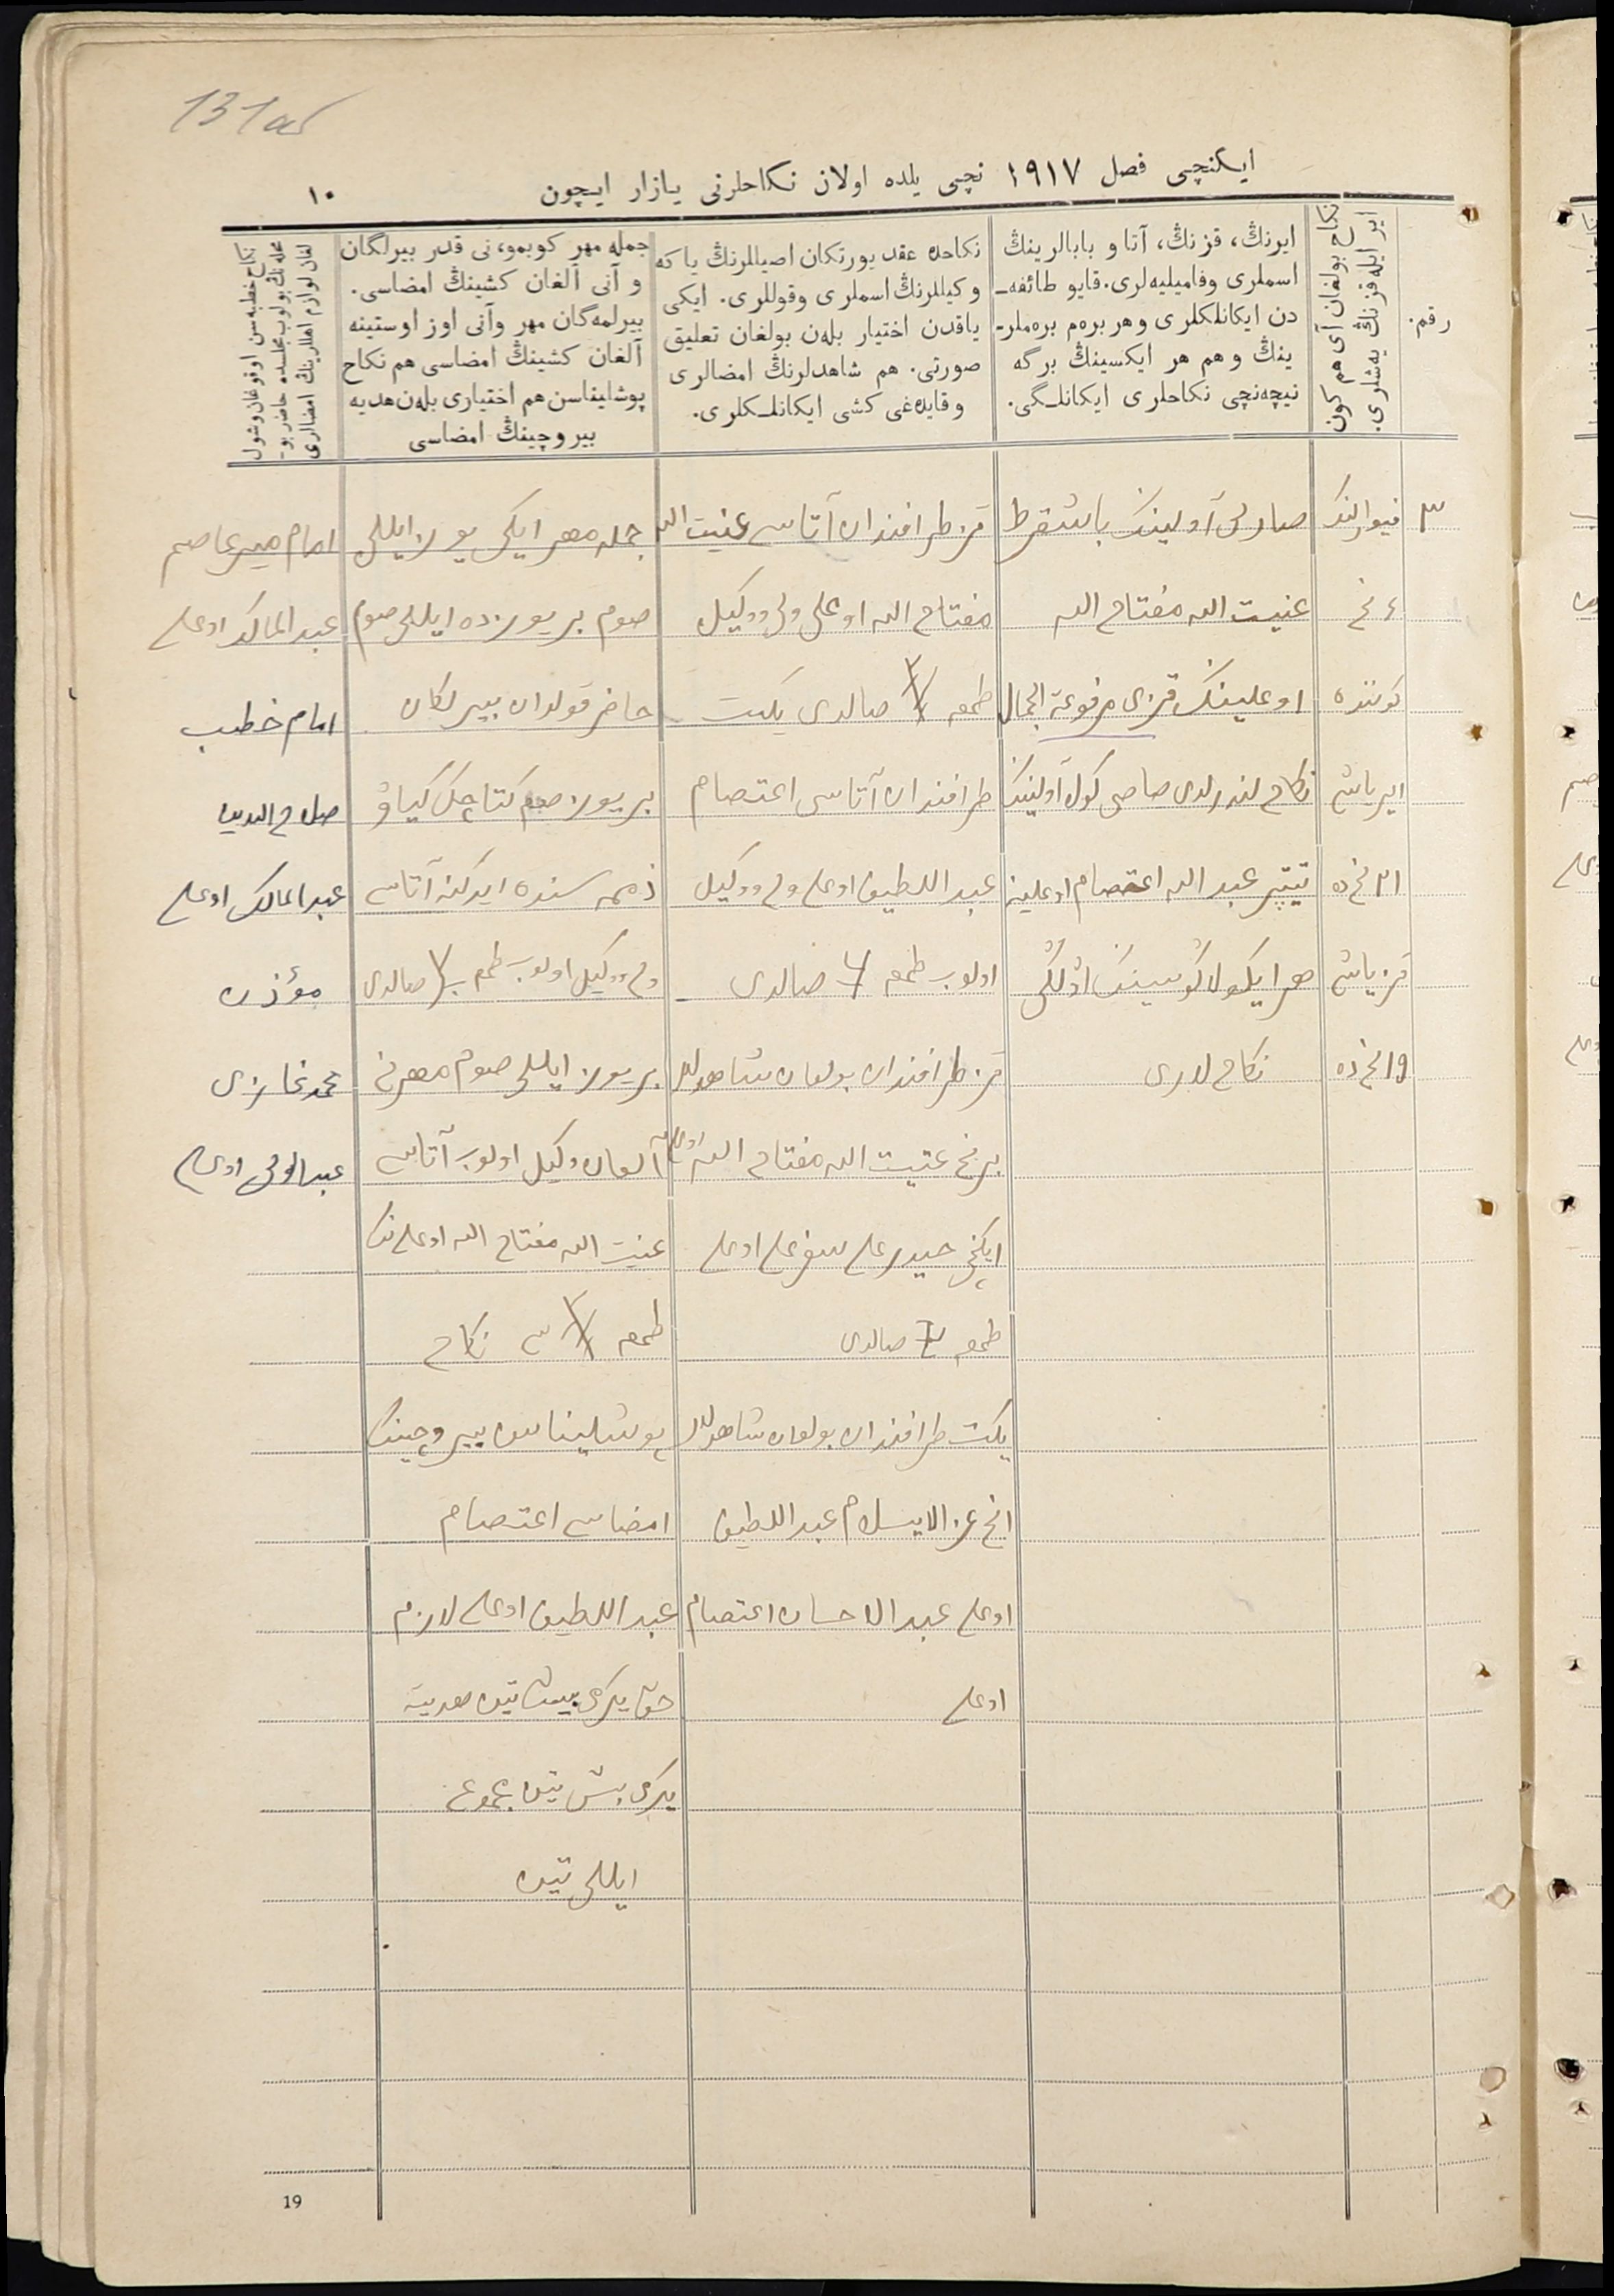 131об
ایکنچی فصل ١٩١٧ نچی یلده اولان نکاحلرنی یازار ایچون
١٠
رقم.
نکاح بولغان آی هم کون
ایر ایله قزنڭ یەشلری.
ایرنڭ، قزنڭ، آتا و بابالرینڭ
اسملری وفامیلیەلری. قایو طائفه‌ـ
دن ایکانلکلری و هر برەم برەملرـ
ینڭ و هم هر ایکسینڭ برگه
نیچەنچی نکاحلری ایکانلـگی.
نکاحدە عقد یورتکان اصیللرنڭ یا که
وکیللرنڭ اسملری وقوللری. ایکی
یاقدن اختیار بلەن بولغان تعلیق
صورتی. هم شاهدلرنڭ امضالری
وقایدەغی کشی ایکانلـکلری.
جملە مهر کوبمو، نی قدر بیرلگان
و آنی آلغان کشینڭ امضاسی.
بیرلمەگان مهر وآنی اوز اوستینه
آلغان کشینڭ امضاسی هم نکاح
پوشلیناسن هم اختیاری بلەن هدیه
بیروچینڭ امضاسی
نکاح خطبه‌سن اوقوغان وشول
محلەنڭ بولوب مجلسدە حاضر بوـ
لغان لوازم اهللرینڭ امضالری
٣
فیورالنڭ
٤ نچی
کوننده
ایر یاشی
٢١ نچی ده
قز یاشی
١٩ نچی ده
صارلی آولینڭ باشقرط
عنیت الله مفتاح الله
اوغلینڭ قزی مرفوعة الجمال
نکاح لندرلدی صاصی کول آولینڭ
تیپتیر عبد الله اعتصام اوغلینه
هر ایکولاگوسینڭ اولگی
نکاح لاری
قز طرافندان آتاسی عنیت الله
مفتاح الله اوغلی ولی و وکیل
طمغه صالدی یکت
طرافندان آتاسی اعتصام
عبد اللطیف اوغلی ولی و وکیل
اولوب طمغه صالدی
قز طرافندان بولغان شاهدلار
برنچی عنیت الله مفتاح الله اوغلی
ایکنچی حیدر علی سفر علی اوغلی
طمغه صالدی
یکت طرافندان بولغان شاهدلار
١نچی عز الاسلام عبد اللطیف
اوغلی عبد الاحسان اعتصام
اوغلی
جمله مهر ایکی یوز ایللی
صوم بر یوزده ایللی صوم
حاضر قولدان بیرلکان
بر یوز صوم کتاچک کیاو
ذمه سنده ایدکنه آتاسی
ولی و وکیل اولوب طمغه صالدی
بر یوز ایللی صوم مهرنی
آلغان وکیل اولوب آتاسی
عنیت الله مفتاح الله اوغلی نڭ
طمغه سی نکاح
پوشلیناسن بیروچینڭ
امضاسی اعتصام
عبد اللطیف اوغلی لازم
حق یکرمی بیش تین هدیه
یکرمی بش تین مجموع
ایللی تین
امام میر عاصم
عبد المالک اوغلی
امام خطیب
صلاح الدین
عبد المالک اوغلی
مؤذن
محمد غازی
عبد الولی اوغلی
19